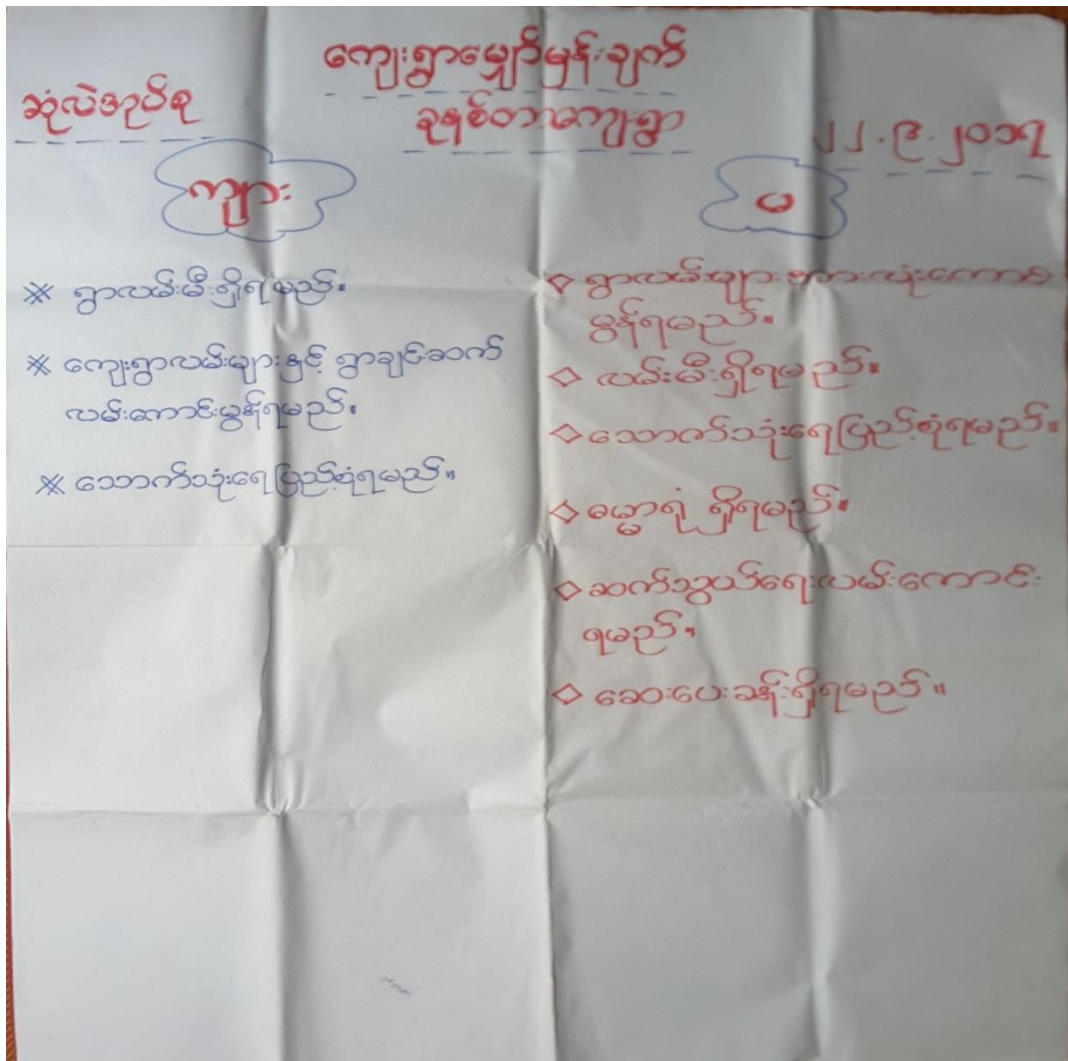 ကျေးရွာမျှော်မှန်းချက်
ဆုံလဲအုပ်စု
ခုနှစ်တာကျေးရွာ
၂၂.၉.၂၀၁၇
ကျား
မ
※ ရွာလမ်းမီးရှိရမည်။
※ ကျေးရွာလမ်းများနှင့် ရွာချင်းဆက်
လမ်းကောင်းမွန်ရမည်။
※ သောက်သုံးရေပြည့်စုံရမည်။
◇ ရွာလမ်းများအားလုံးကောင်း
မွန်ရမည်။
◇ လမ်းမီးရှိရမည်။
◇ သောက်သုံးရေပြည့်စုံရမည်။
◇ ဓမ္မာရုံ ရှိရမည်။
◇ ဆက်သွယ်ရေးလမ်းကောင်း
ရမည်။
◇ ဆေးပေးခန်းရှိရမည်။